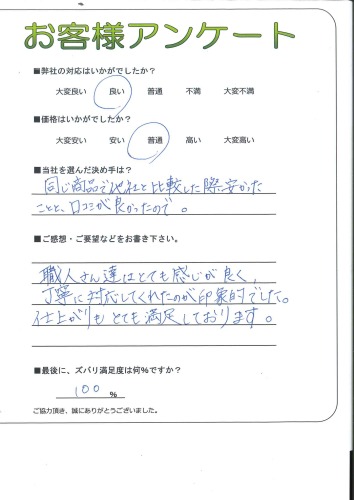 お客様アンケート
■弊社の対応はいかがでしたか?
大変良い 良い 普通 不満 大変不満
■価格はいかがでしたか?
大変安い 安い 普通 高い 大変高い
■当社を選んだ決め手は?
同じ商品で他社と比較した際、安かった
ことと、口コミが良かったので。
■ご感想・ご要望などをお書き下さい。
職人さん達はとても感じが良く、
丁寧に対応してくれたのが印象的でした。
仕上がりもとても満足しております。
■最後に、ズバリ満足度は何%ですか?
100 %
ご協力頂き、誠にありがとうございました。